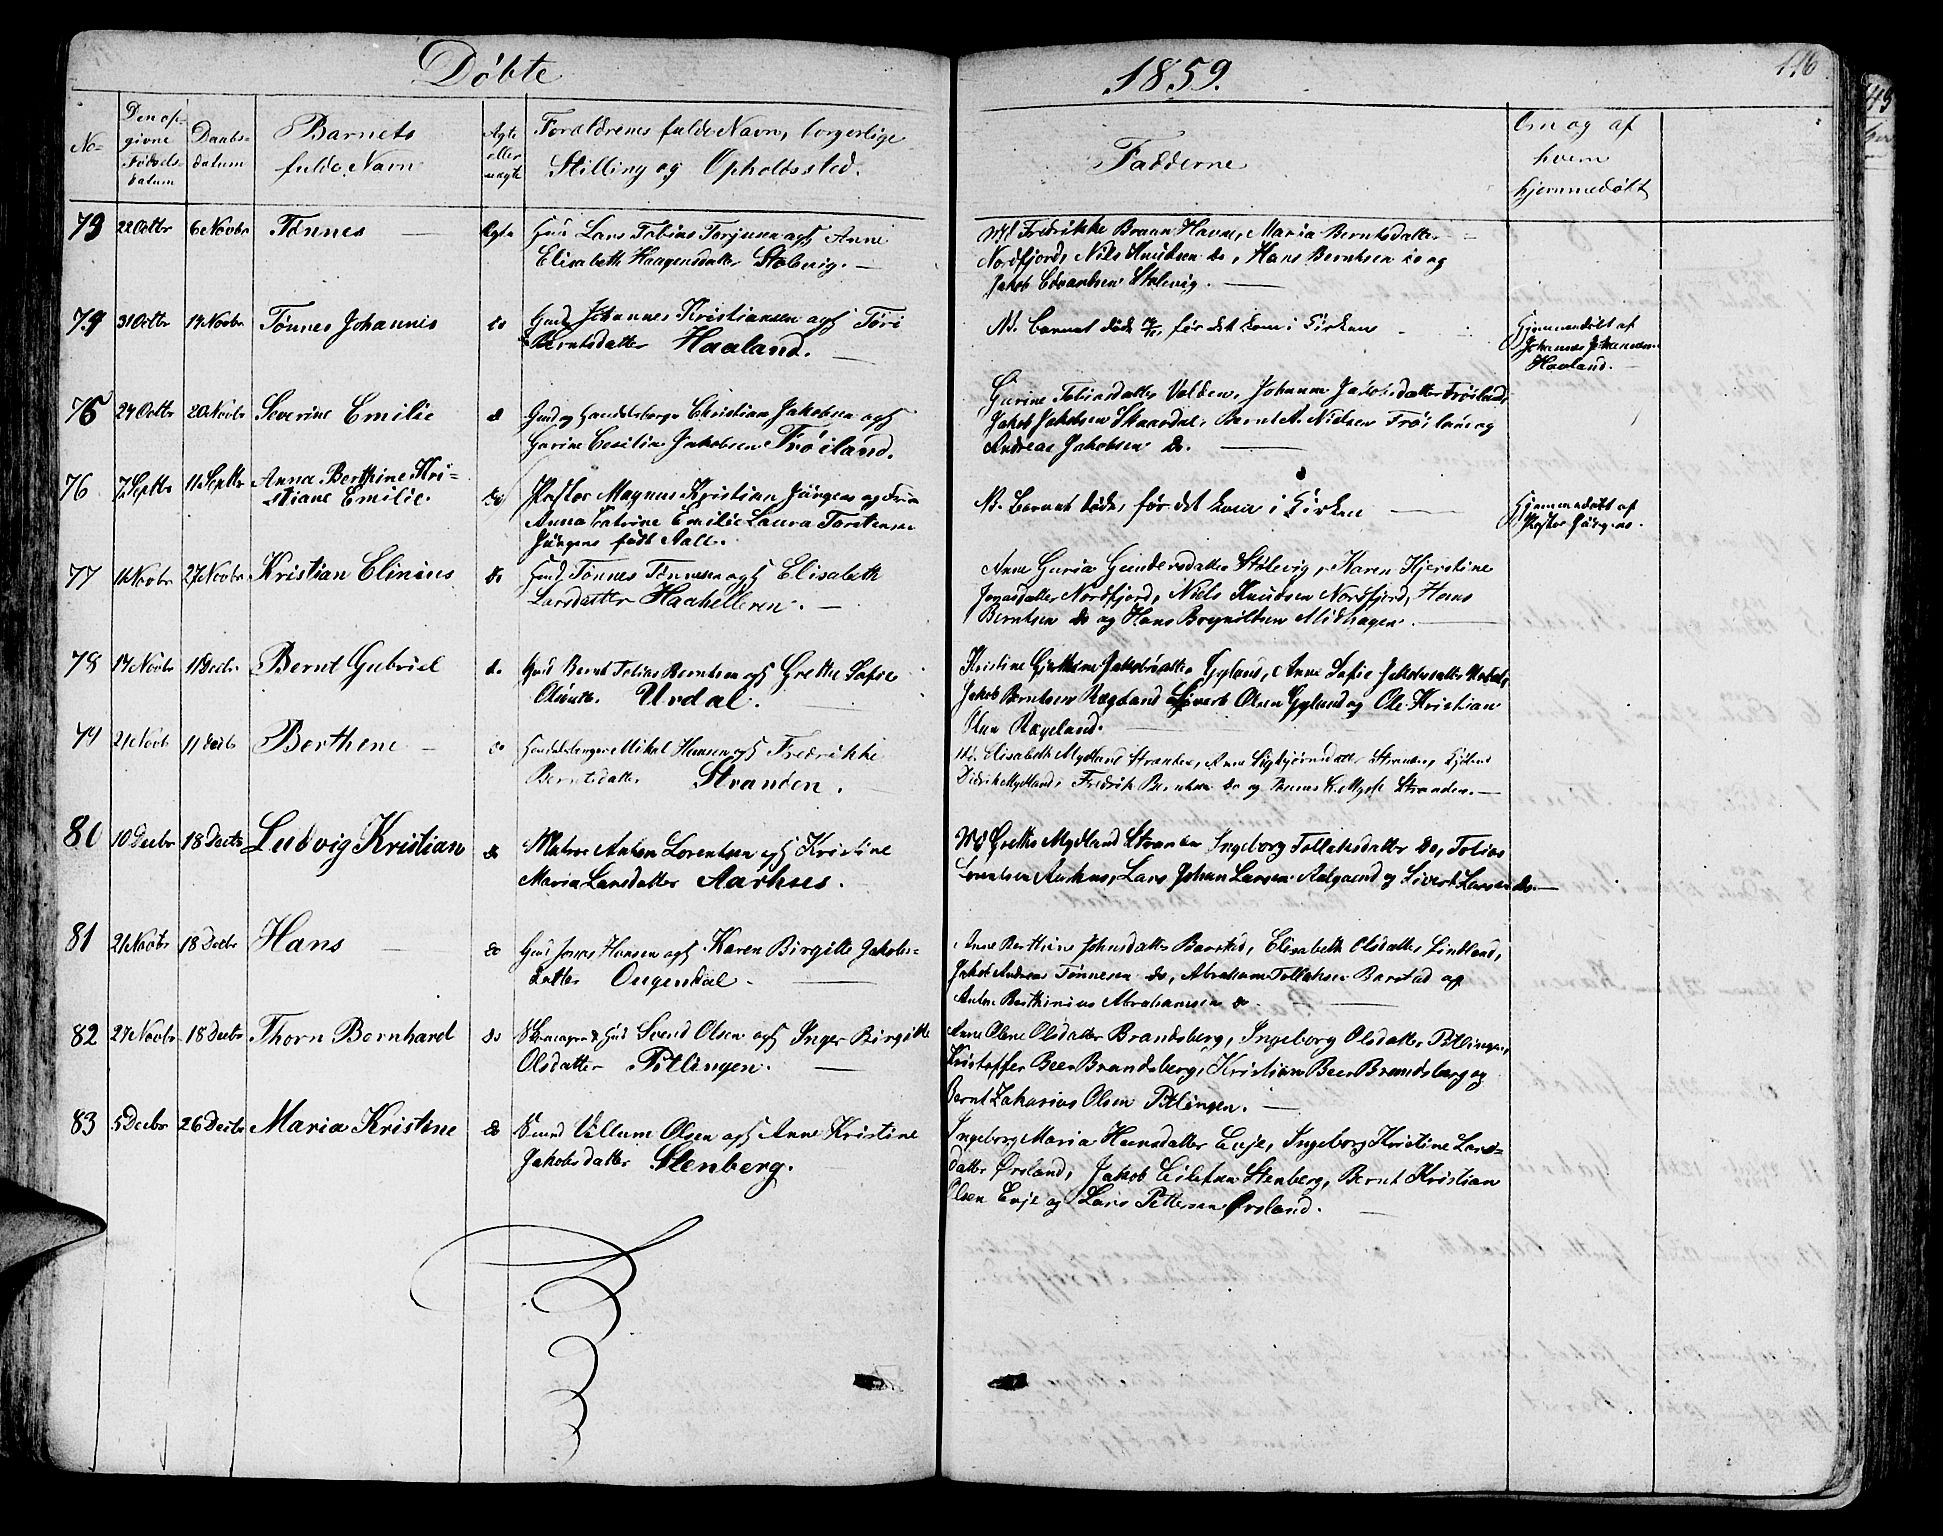 Døbte
1859.
116
No
Den op-
givne
Fødsels-
datum
Daabs-
datum
Barnets
fulde Navn
Ægte
eller
uægte
Forældrenes fulde Navn, borgerlige
Stilling og Opholdssted.
Fadderne
Om og af
hvem
hjemmedøbt
73 22 Octbr 6 Novbr Tønnes — Ægte Lars Tobias Terjesen og Anne
Elisabeth Haagensdatter Stølevig. —
Fredrikke Braun Havn, Maria Berntsdatter
Nordfjord, Niels Knudsen do, Hans Berntsen do og
Jakob Edvardsen Stølevig. —
74 31 Octbr 14 Novbr Tønnes Johannes do Gmd Johannes Kristiansen og Tøri
Berntsdatter Haaland. —
NB. Barnet døde før det kom i Kirken —
Hjemmedøbt af
Johannes Johannesen
Haaland. —
75 24 Octbr 20 Novbr Severine Emilie do Gmd og Handelsborger Christian Jakobsen og
Cecilie Jakobsen Frøiland.
Gurine Tobiasdatter Valden, Johanne Jakobsdatter Frøiland,
Jakob Jakobsen Skaardal, Bernt A. Nielsen Frøiland og
Andreas Jakobsen do. —
76 7 Septbr 11 Septbr Anna Berthine Kri-
stiane Emilie. do Pastor Magnus Kristian Jürgens og Fru
Anna Catrine Emilie Laura
Jürgens født Aall.
NB. Barnet døde, før det kom i Kirken —
Hjemmedøbt af
Pastor Jürgens.
77 Novbr 27 Novbr Kristian Elinius do Gmd Tønnes Tønnesen og Elisabeth
Larsdatter Haahelleren. —
Anne Guria Gundersdatter Stølevig, Karen Kjerstine
Jonasdatter Nordfjord, Niels Knudsen Nordfjord, Hans
Berntsen do og Hans Brynildsen Midhagen. —
78 14 Novbr 11 Decbr Bernt Gabriel do Gmd Bernt Tobias Berntsen og Grethe Sofie
Olsdatter. Urdal. —
Kristine Jakobsdatter Gyland, Anne Sofie Jakobsdatter
Jakob Berntsen Rægeland Sivert Olsen Gyland og Ole Kristian
Rægeland. —
79 21 Novb 11 Decbr Berthene — do Handelsborger Mikal Hansen og Fredrikke
Berntsdatter Stranden. —
Elisabeth Mydland Stranden, Anne Sigbjørnsdatter Stranden,
Didrik Mydland, Fredrik Berntsen do og Stranden. —
80 10 Decbr 18 Decbr Ludvig Kristian do Matros Anton Lorentsen og Kristine
Maria Larsdatter Aarhuus. —
Grethe Mydland Stranden Ingeborg Tollaksdatter do, Tobias
Lorentsen Aarhus, Lars Johan Larsen Aalgaard og Sivert Larsen do. —
81 21 Novbr 18 Decbr Hans — do Gmd Jonas Hansen og Karen Birgitte Jakobs-
datter Ougendal. —
Anne Berthine Johnsdatter Barstad, Elisabeth Olsdatter Lindland,
Jakob Andreas Tønnesen do, Abraham Tollaksen Barstad og
Anton Berthinius Abrahamsen do. —
82 27 Novbr 18 Decbr Thorn Bernhard do Skomager & Gmd Svend Olsen og Inger Birgitte
Olsdatter Pitlingen. —
Anne Olene Olsdatter Brandsberg, Ingeborg Olsdatter Pitlingen,
Kristoffer Beer Brandsberg, Kristian Beer Brandsberg og
Bernt Zakarias Olsen Pitlingen. —
83 5 Decbr 26 Decbr Maria Kristine do Villum Olsen og Anne Kristine
Jakobsdatter Stenberg. —
Ingeborg Maria Hansdatter Eeje, Ingeborg Kristine Lars-
datter Ørsland, Jakob Eilertsen Stenberg, Bernt Kristian
Olsen Eeje og Lars Pettersen Ørsland. —